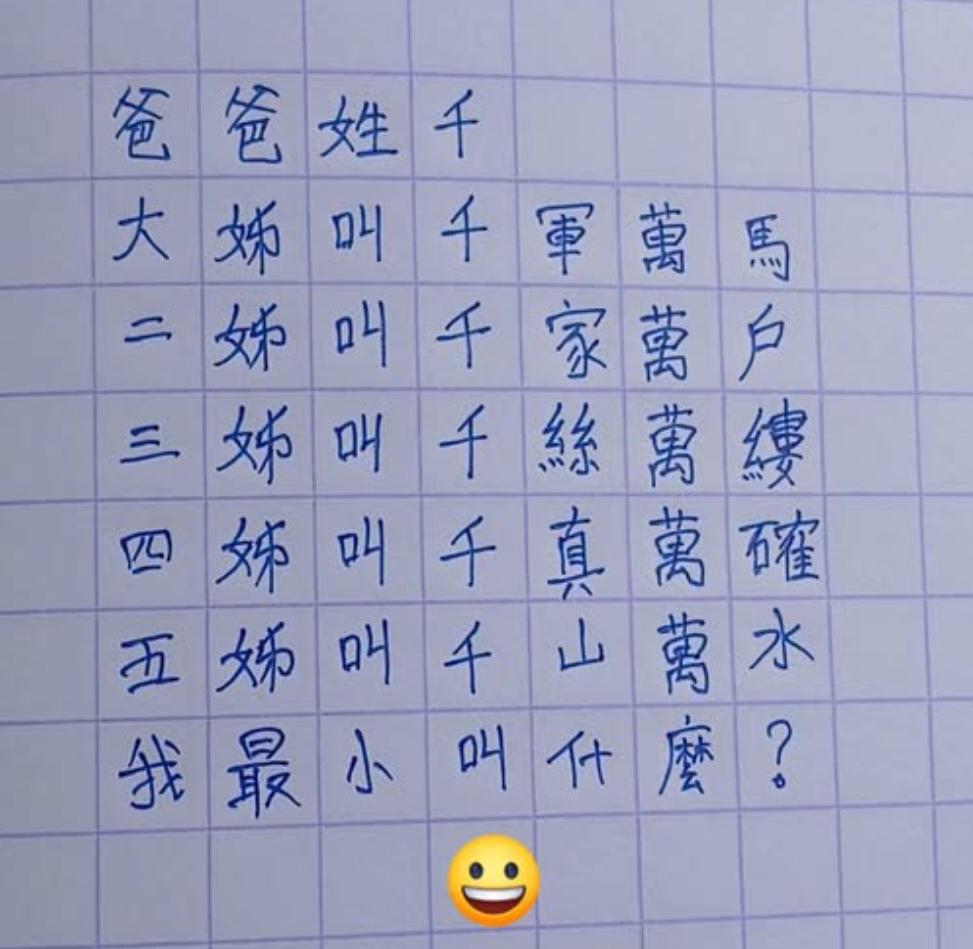 爸爸姓千
大姊叫千軍萬馬
二姊叫千家萬戶
三姊叫千絲萬縷
四姊叫千真萬確
五姊叫千山萬水
我最小叫什麼？